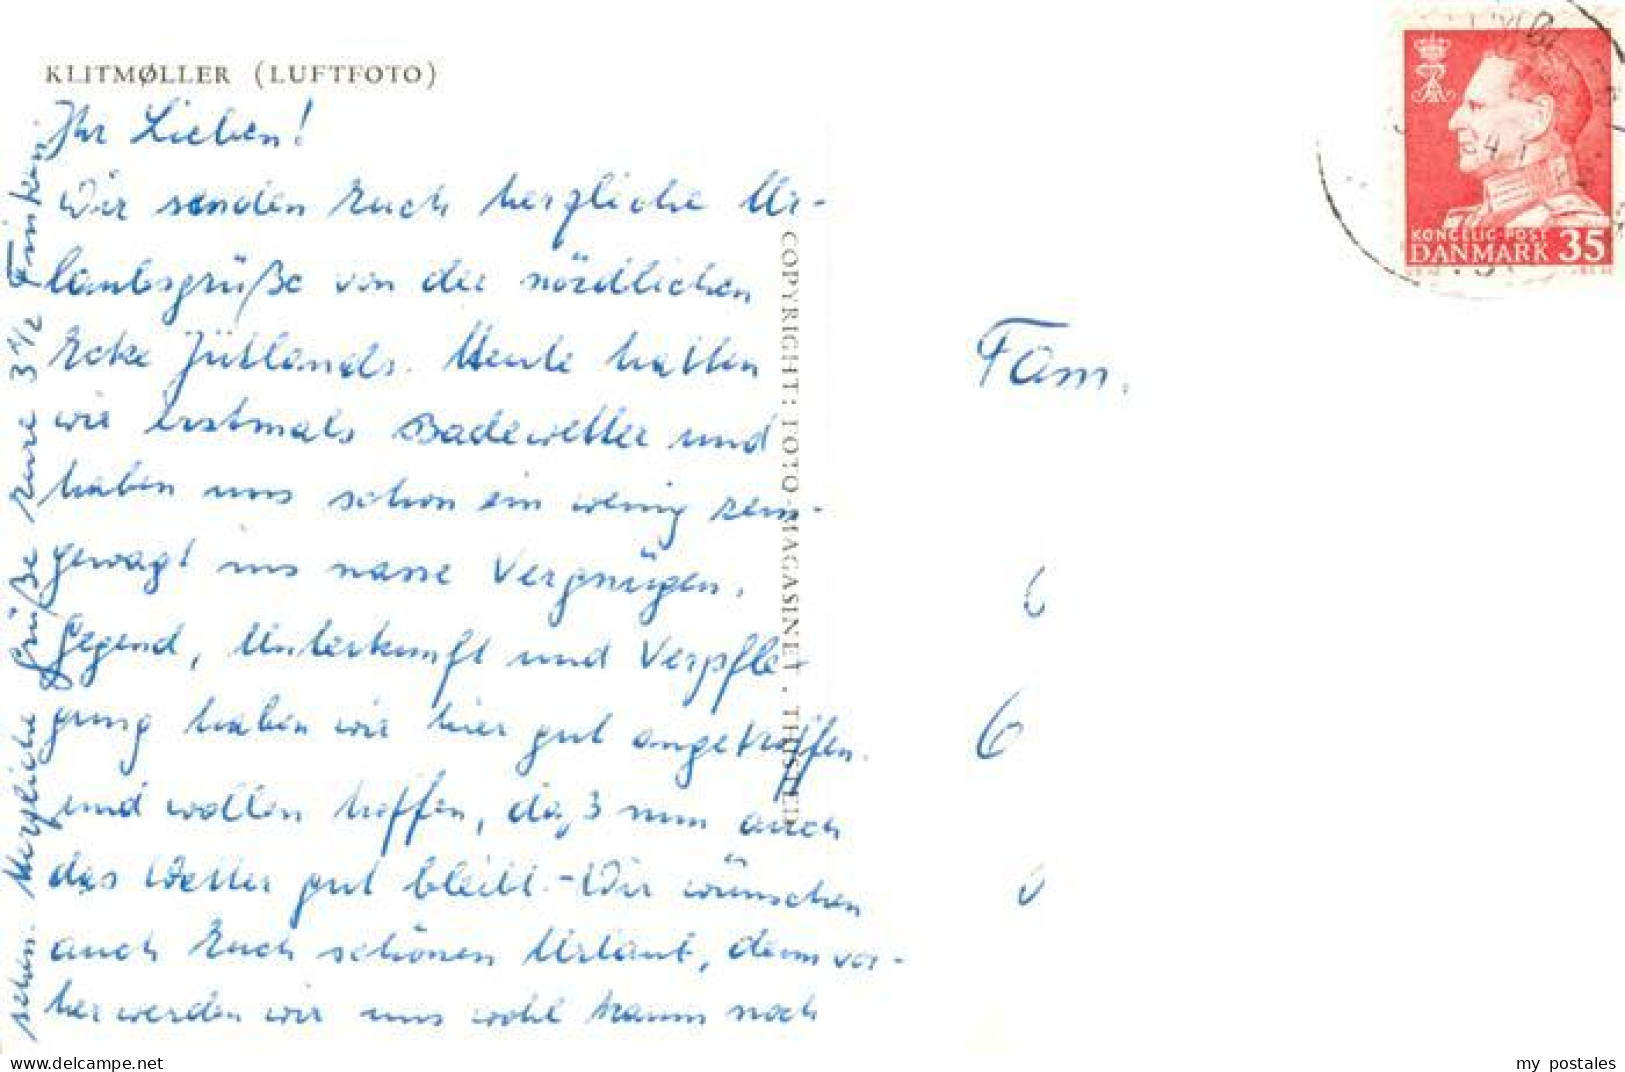 KLITMØLLER (LUFTFOTO)
Ihr Lieben!
Wir senden Euch herzliche Ur-
laubsgrüße von der nördlichen
Ecke Jütlands. Heute hatten
wir erstmals Badewetter und
haben uns schon ein wenig rein-
gewagt ins nasse Vergnügen.
Gegend, Unterkunft und Verpfle-
gung haben wir hier gut angetroffen
und wollen hoffen, daß nun auch
das Wetter gut bleibt. - Wir wünschen
auch Euch schönen Urlaub, denn vor-
her werden wir uns wohl kaum noch
sehen. Herzliche Grüße Eure 3 1/2
COPYRIGHT: FOTO-MAGASINET · THISTED
Fam.
KONGELIG POST
DANMARK 35
www.delcampe.net
my_postales